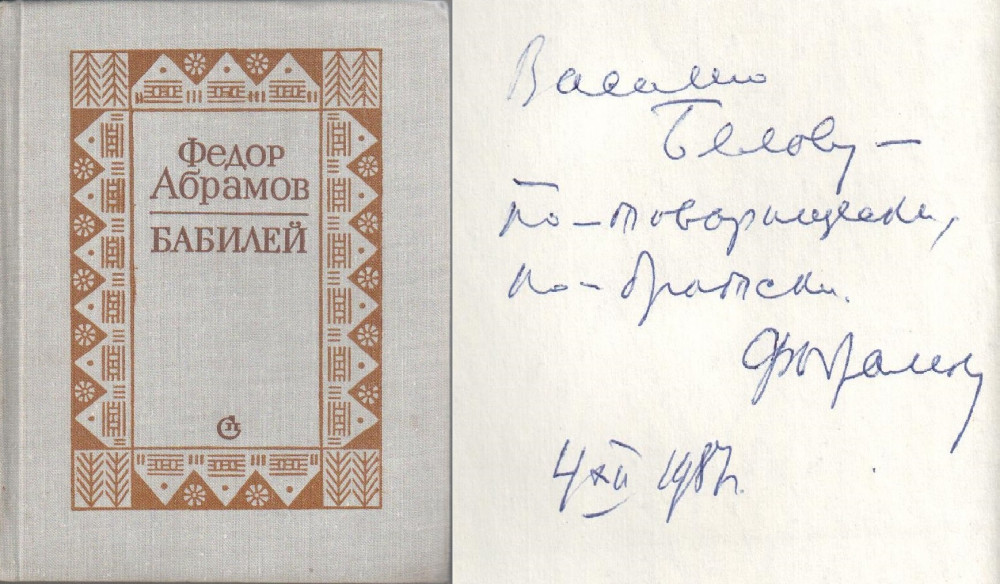 Федор
Абрамов
БАБИЛЕЙ
Василию
Белову —
по-товарищески,
по-братски.
ФАбрамов
4 XII 1981 г.